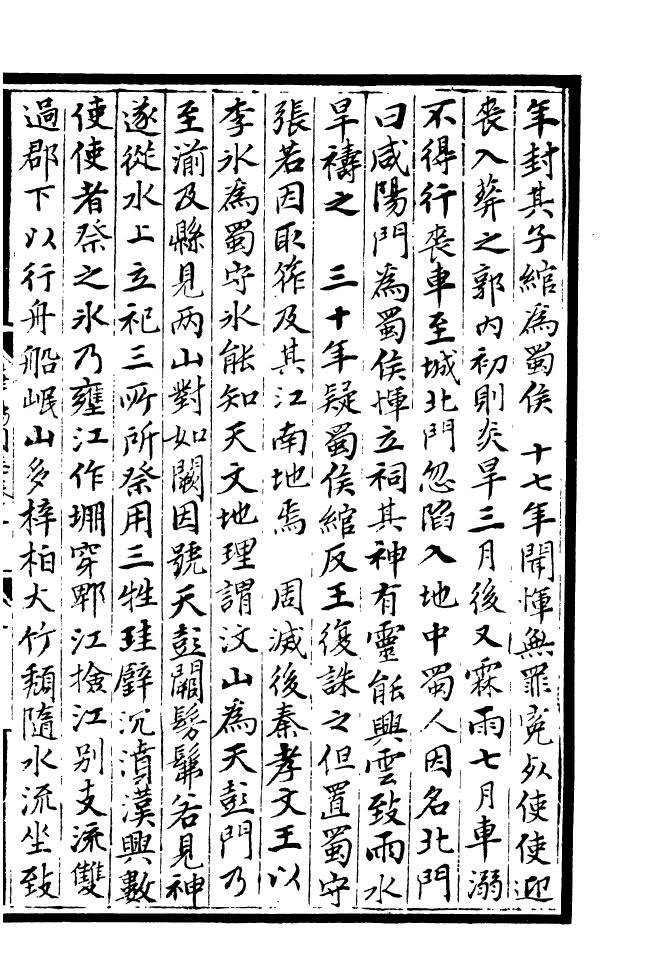 年封其子綰為蜀侯　十七年聞惲無罪寃死使使迎
喪入葬之郭內初則炎旱三月後又霖雨七月車溺
不得行喪車至城北門忽陷入地中蜀人因名北門
曰咸陽門為蜀侯惲立祠其神有靈能興雲致雨水
旱禱之　三十年疑蜀侯綰反王復誅之但置蜀守
張若因取筰及其江南地焉　周滅後秦孝文王以
李氷為蜀守氷能知天文地理謂汶山為天彭門乃
至湔及縣見兩山對如闕因號天彭闕髣髴若見神
遂從水上立祀三所所祭用三牲珪璧沉濆漢興數
使使者祭之氷乃壅江作堋穿郫江撿江別支流雙
過郡下以行舟船岷山多梓柏大竹頺隨水流坐致